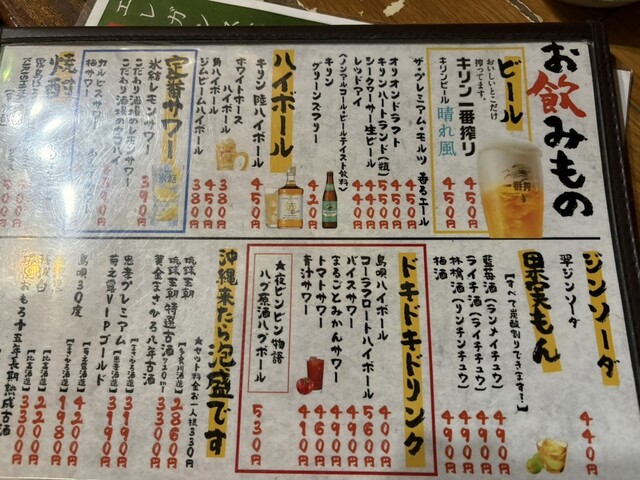 お飲みもの
ビール
おいしいとこだけ
搾ってます。
キリン一番搾り 450円
キリンビール 晴れ風 450円
ザ・プレミアム・モルツ 香るエール 450円
オリオンドラフト 450円
キリンハートランド(瓶) 550円
シークワーサー生ビール 440円
レッドアイ 440円
(ノンアルコール・ビールテイスト飲料)
キリン
グリーンズフリー 420円
ハイボール
キリン 陸ハイボール 450円
ホワイトホース
ハイボール 380円
角ハイボール 450円
ジムビームハイボール 380円
定番サワー
氷結レモンサワー 390円
こだわり酒場のレモンサワー
こだわり酒場のタコハイ
カルピスサワー
梅サワー
ジンソーダ
翠ジンソーダ 440円
果実もん
【すべて炭酸割りできます!】
藍苺酒(ランメイチュウ) 490円
ライチ酒(ライチチュウ) 490円
林檎酒(リンチンチュウ) 490円
梅酒 490円
ドキドキドリンク
島唄ハイボール 400円
コーラフロートハイボール 560円
バイスサワー 400円
まるごとみかんサワー 490円
トマトサワー 460円
青汁サワー 410円
★夜ビンビン物語
ハブ原酒ハブボール 530円
沖縄来たら泡盛です
★セット料金お一人様330円
琉球王朝 特選古酒 2860円
黄金まさひろ八年古酒 3300円
忠孝プレミアム 【忠孝酒造】 3190円
菊之露VIPゴールド 3190円
島唄30度 420円
1980円
2200円
3300円
おもろ十五年長期熟成古酒